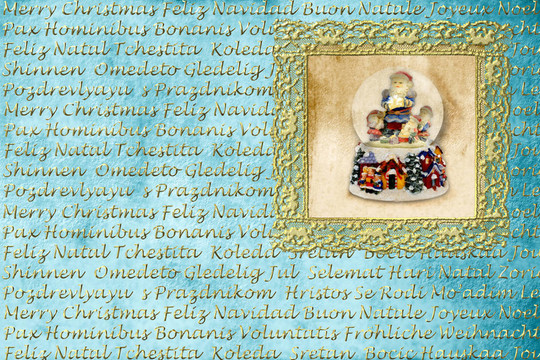 Merry Christmas Feliz Navidad Buon Natule Joyeux Noel
Pax Hominibus Bonanis
Feliz Natul Tchestita Koleda
Shinnen Omedeto Gledelig
Pozdrevlyuyu s Prazdnikom
Merry Christmas Feliz Navidad
Pax Hominibus Bonanis
Feliz Natul Tchestita Koleda
Shinnen Omedeto Gledelig
Pozdrevlyuyu s Prazdnikom
Merry Christmas Feliz
Pax Hominibus Bonanis
Feliz Natul Tchestita Koleda Sretun Bocic Hauskaa
Shinnen Omedeto Gledelig Jul Selemat Hari Natal Zori
Pozdrevlyuyu s Prazdnikom Hristos Se Rodi Mo'adim Le
Merry Christmas Feliz Navidad Buon Natule Joyeux Noel
Pax Hominibus Bonanis Voluntutis Frohliche Weihnacht
Feliz Natul Tchestita Koleda Sretun Bocic Hauskaa